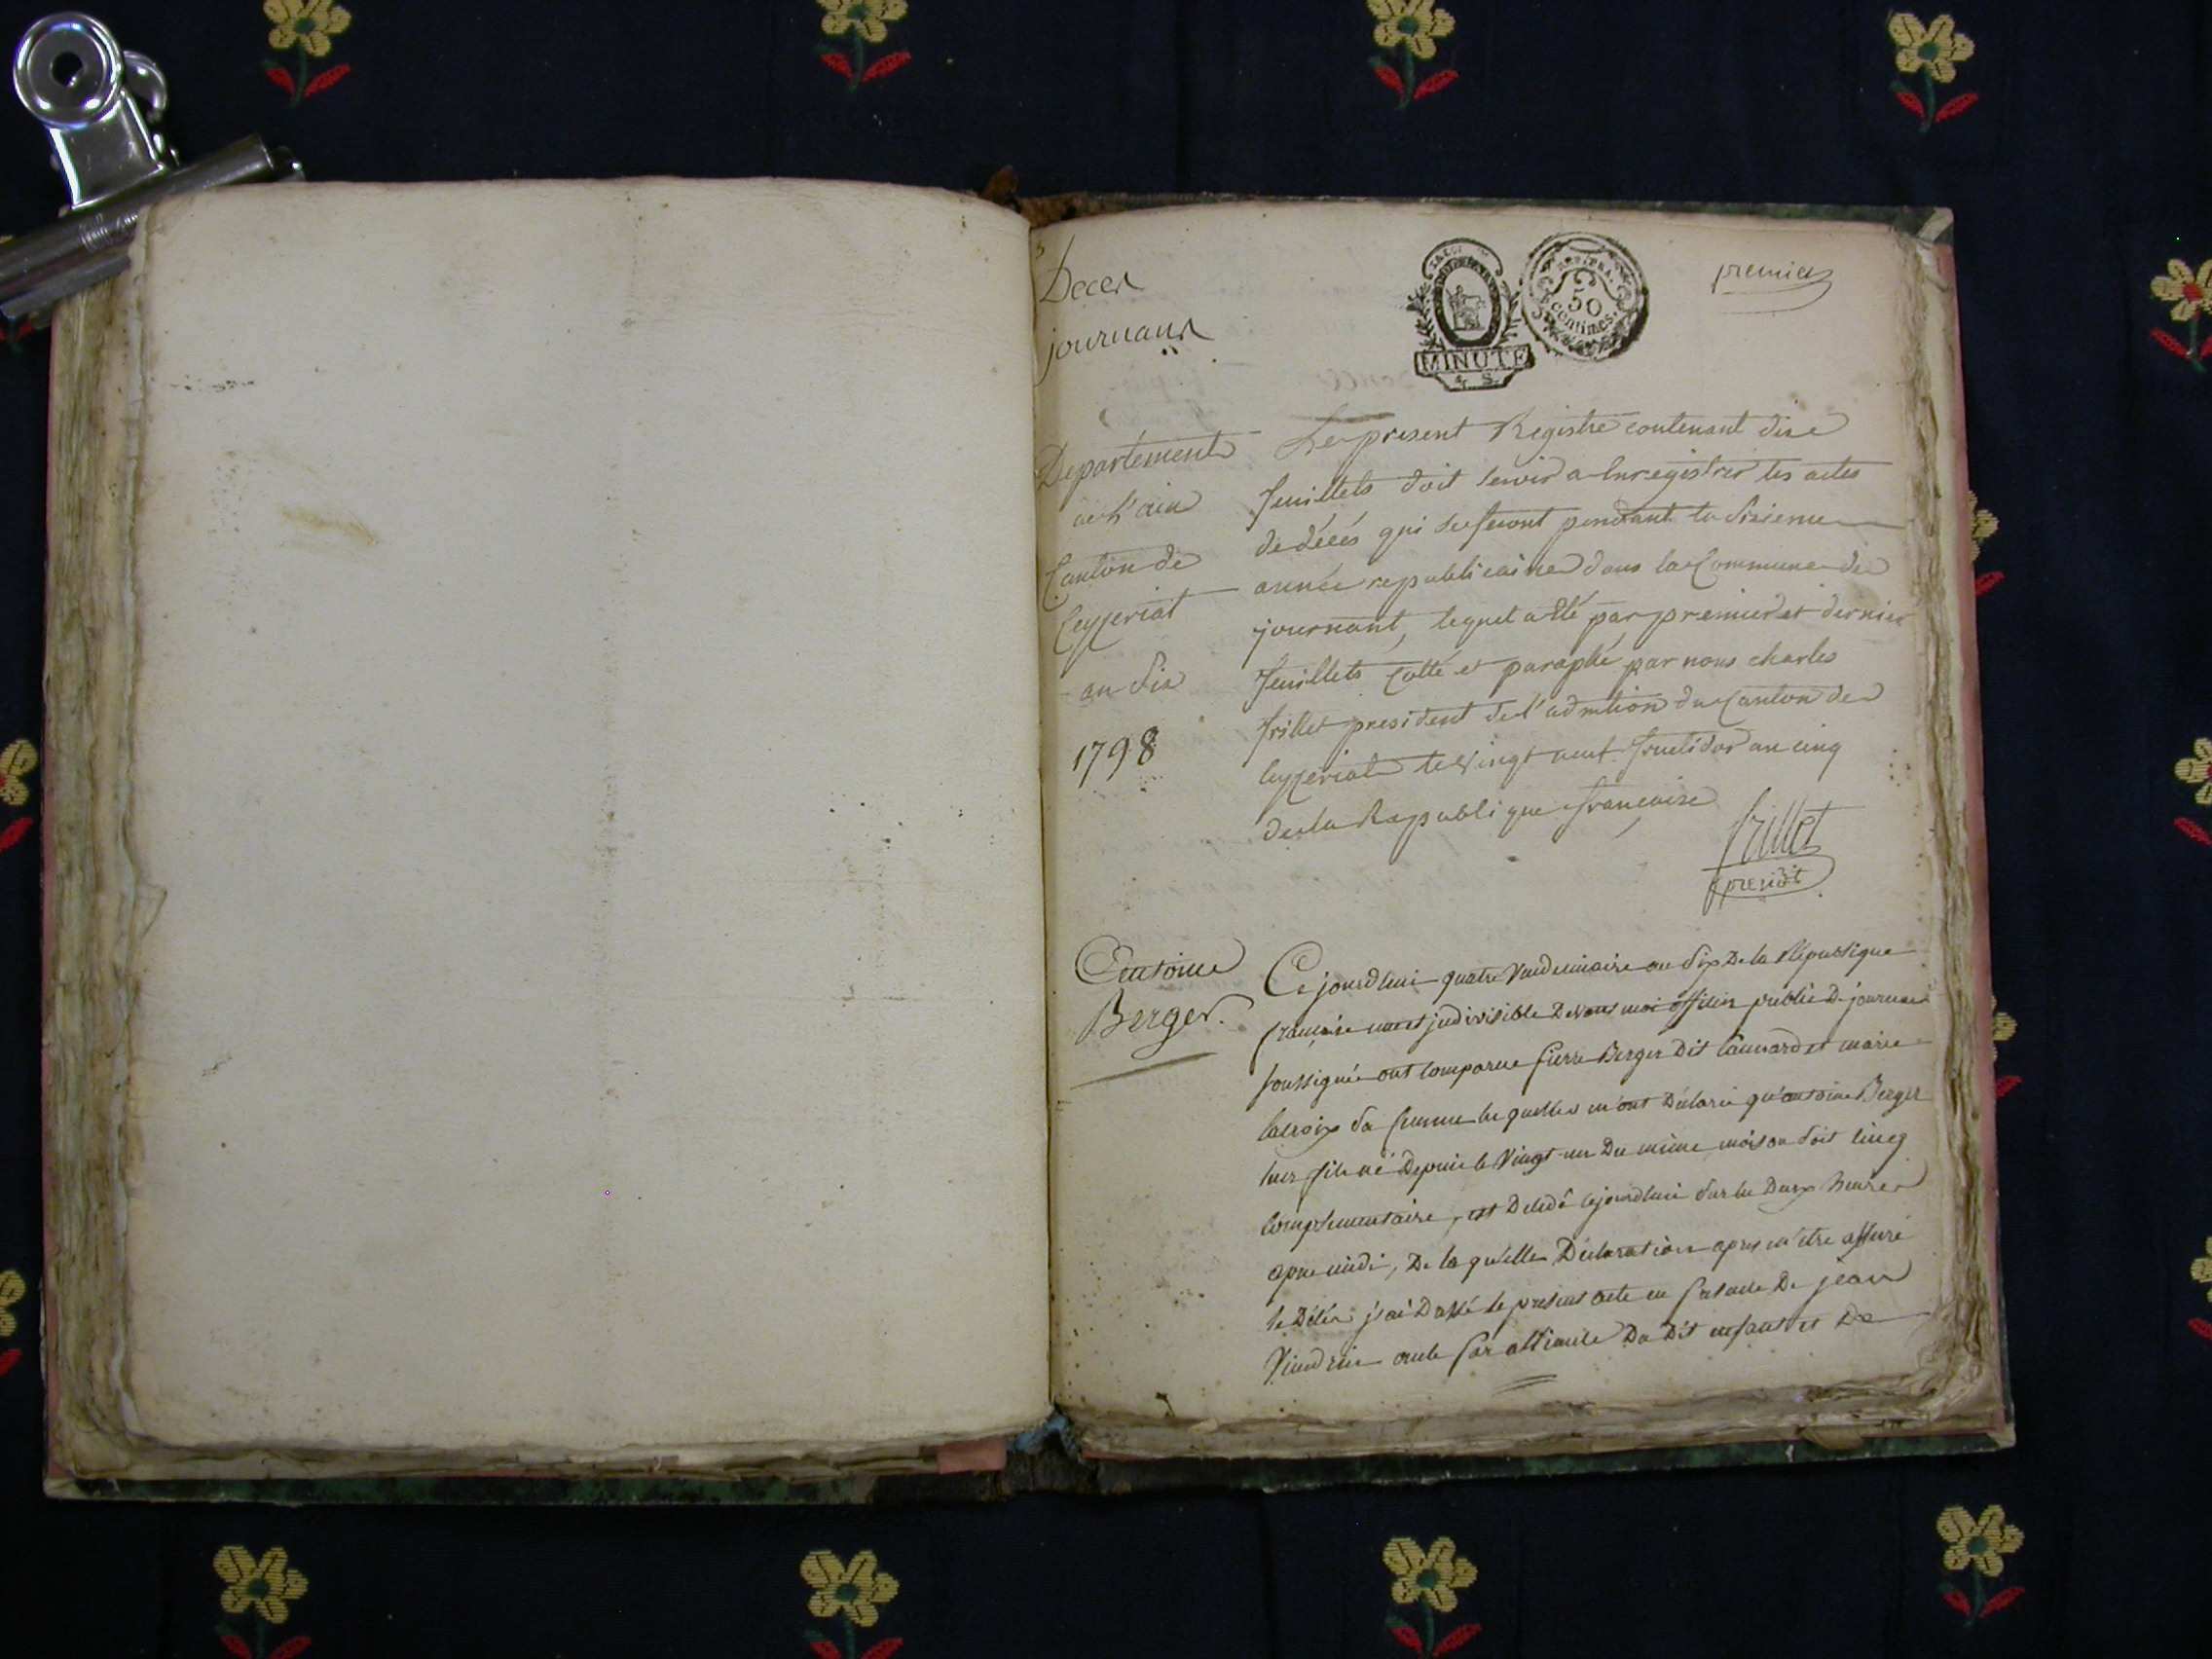 Deces
journans
premier
LA LOI
MINUTE
& S.
RÉP. FRA.
50
centimes.
Departement
de l'ain
Canton de
Ceyzeriat
an Six
1798
Le present Registre contenant dixe
feuillets doit servir a Enregistrer les actes
de décés qui se feront pendant la Sixieme
année republicaine dans la Commune de
journant, lequel a été par premier et dernier
feuillets Cotté et paraphé par nous charles
frillet president de l'admtion du Canton de
Ceyzeriat le Vingt neuf fructidor an cinq
de la Republique francaise
frillet
presidt
Antoine
Berger.
Ce jourdhui quatre Vendemiaire an Six De la République
francaise une et indivisible Devant moi officier public De journans
soussigné ont Comparue pierre Berger Dit et marie
lacroix Sa femme lesquelles m'ont Déclarée qu'antoine Berger
leur fils né Depuis le Vingt un Du même mois ou Soit Cincq
Complementaire, est Décédé cejourdhui Sur les Deux heures
apres midi, De laquelle Déclaration apres m'être assuré
le Décés j'ai Dressé le present acte en presence De jean
oncle par alliance Du Dit enfant et De